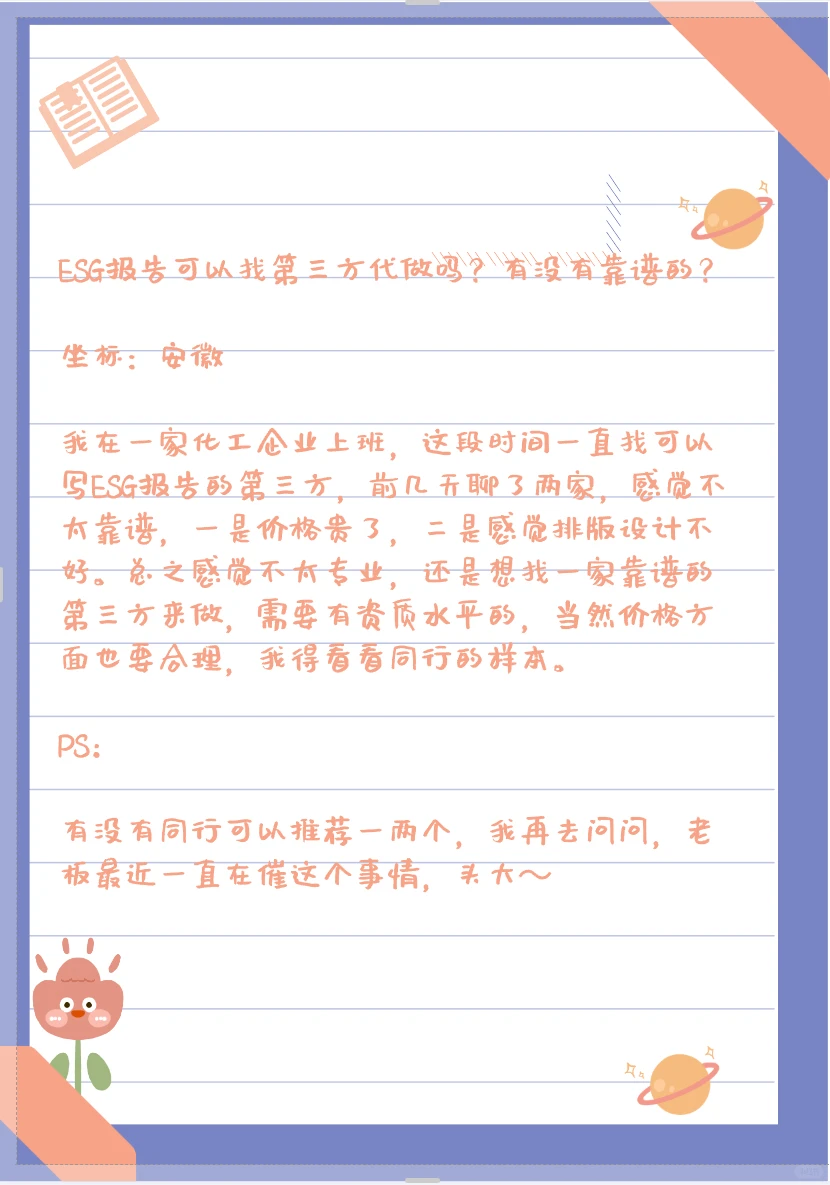 ESG报告可以找第三方代做吗？有没有靠谱的？
坐标：安徽
我在一家化工企业上班，这段时间一直找可以
写ESG报告的第三方，前几天聊了两家，感觉不
太靠谱，一是价格贵了，二是感觉排版设计不
好。总之感觉不太专业，还是想找一家靠谱的
第三方来做，需要有资质水平的，当然价格方
面也要合理，我得看看同行的样本。
PS：
有没有同行可以推荐一两个，我再去问问，老
板最近一直在催这个事情，头大～